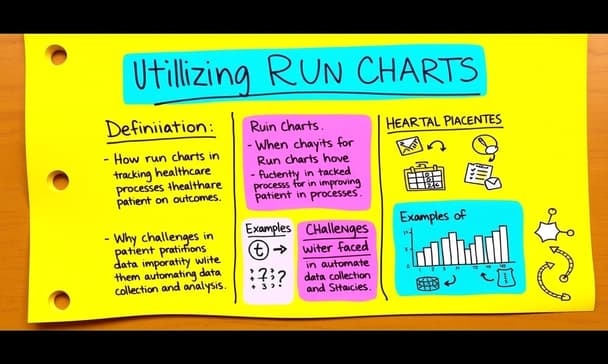 Utillizing RUN CHARTS
Definiiation:
- How run charts in
tracking healthcare
processes thealthare
patient on outcomes.
- Why challenges in
patient pratifions
data imporatity write
them automating data
collection and analysis.
Ruin Charts.
- When chayits for
Run charts hove
- fuctently in tacked
procesb for in improving
patient in processes.
Examples
t
Challenges
witer faced
in automate
data collection
and
HEARTAL PIACENTES
Examples of